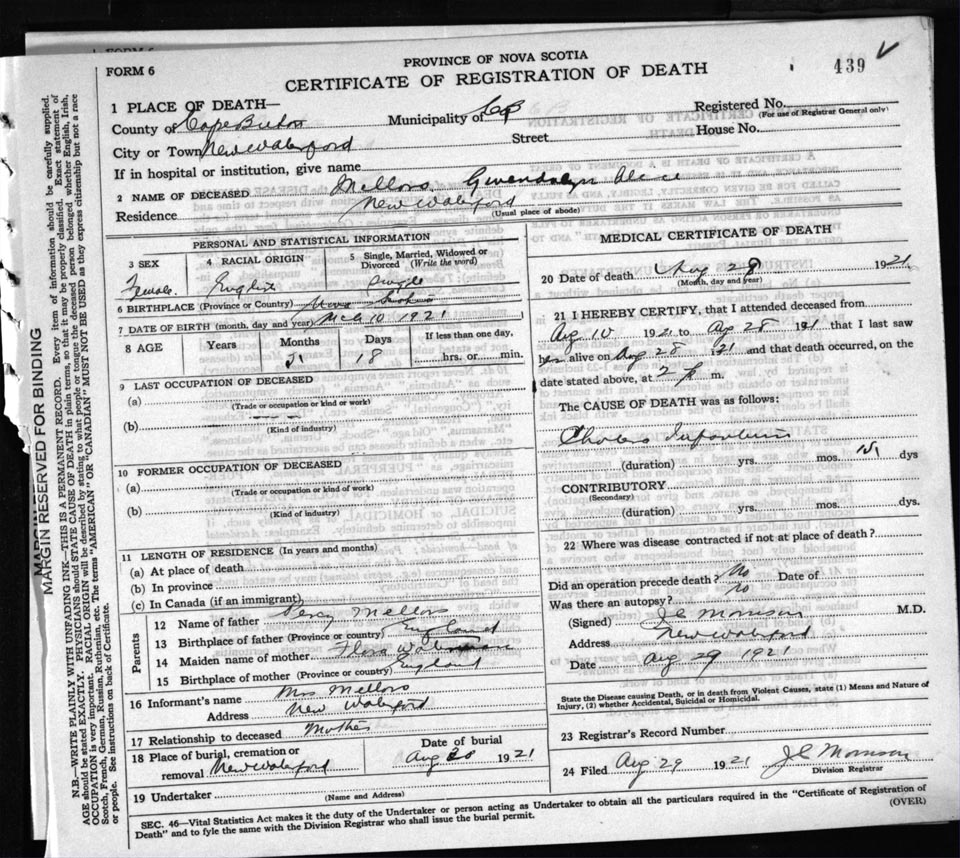 FORM 6
PROVINCE OF NOVA SCOTIA
CERTIFICATE OF REGISTRATION OF DEATH
439
1 PLACE OF DEATH—
County of Cape Breton Municipality of CB Registered No.
(For use of Registrar General only)
City or Town New Waterford Street House No.
If in hospital or institution, give name
2 NAME OF DECEASED Mellors Gwendolyn Alice
Residence New Waterford
(Usual place of abode)
PERSONAL AND STATISTICAL INFORMATION
3 SEX 4 RACIAL ORIGIN 5 Single, Married, Widowed or Divorced (Write the word)
Female English Single
6 BIRTHPLACE (Province or Country) Nova Scotia
7 DATE OF BIRTH (month, day and year) Mch 10 1921
8 AGE Years Months Days If less than one day,
5 18 hrs. or min.
9 LAST OCCUPATION OF DECEASED
(a)
(Trade or occupation or kind or work)
(b)
(Kind of industry)
10 FORMER OCCUPATION OF DECEASED
(a)
(Trade or occupation or kind of work)
(b)
(Kind of industry)
11 LENGTH OF RESIDENCE (In years and months)
(a) At place of death
(b) In province
(c) In Canada (if an immigrant)
Parents
12 Name of father Percy Mellors
13 Birthplace of father (Province or country) England
14 Maiden name of mother Flora
15 Birthplace of mother (Province or country) England
16 Informant's name Mrs Mellors
Address New Waterford
17 Relationship to deceased Mother
18 Place of burial, cremation or removal New Waterford Date of burial Aug 30 1921
19 Undertaker
(Name and Address)
MEDICAL CERTIFICATE OF DEATH
20 Date of death Aug 28 1921
(Month, day and year)
21 I HEREBY CERTIFY, that I attended deceased from
Aug 10 1921 to Aug 28 1921 that I last saw
her alive on Aug 28 1921 and that death occurred, on the
date stated above, at 2 p m.
The CAUSE OF DEATH was as follows:
Cholera Infantum
(duration) yrs. mos. dys
CONTRIBUTORY
(Secondary)
(duration) yrs. mos. dys.
22 Where was disease contracted if not at place of death?
Did an operation precede death? No Date of
Was there an autopsy? No
(Signed) J C Morrison M.D.
Address New Waterford
Date Aug 29 1921
State the Disease causing Death, or in death from Violent Causes, state (1) Means and Nature of
Injury, (2) whether Accidental, Suicidal or Homicidal.
23 Registrar's Record Number
24 Filed Aug 29 1921 J C Morrison
Division Registrar
SEC. 46—Vital Statistics Act makes it the duty of the Undertaker or person acting as Undertaker to obtain all the particulars required in the "Certificate of Registration of
Death" and to fyle the same with the Division Registrar who shall issue the burial permit.
(OVER)
MARGIN RESERVED FOR BINDING
N.B.—WRITE PLAINLY WITH UNFADING INK—THIS IS A PERMANENT RECORD. Every item of information should be carefully supplied.
AGE should be stated EXACTLY. PHYSICIANS should STATE CAUSE OF DEATH in plain terms, so that it may be properly classified. Exact statement of
OCCUPATION is very important. RACIAL ORIGIN will be described by stating to what people or tongue the deceased person belonged whether English, Irish,
Scotch, French, German, Russian, Ruthenian, etc. The terms "AMERICAN" OR "CANADIAN" MUST NOT BE USED as they express citizenship but not a race
or people. See instructions on back of Certificate.